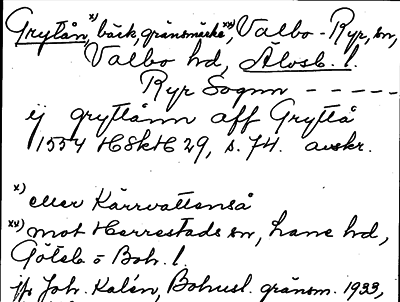 Grytån,x) bäck, gränsmärke xx), Valbo-Ryr, sn,
Valbo hd, Älvsb. l.
Ryr Sognn - - - - -
ij gryttånn aff Gryttå
1554 HSkH 29, s. 74. avskr.
x) eller Kärrvattenså
xx) mot Herrestads sn, Lane hd,
Göteb o Boh. l.
jfr Joh. Kalén, Bohusl. gränsm. 1933,